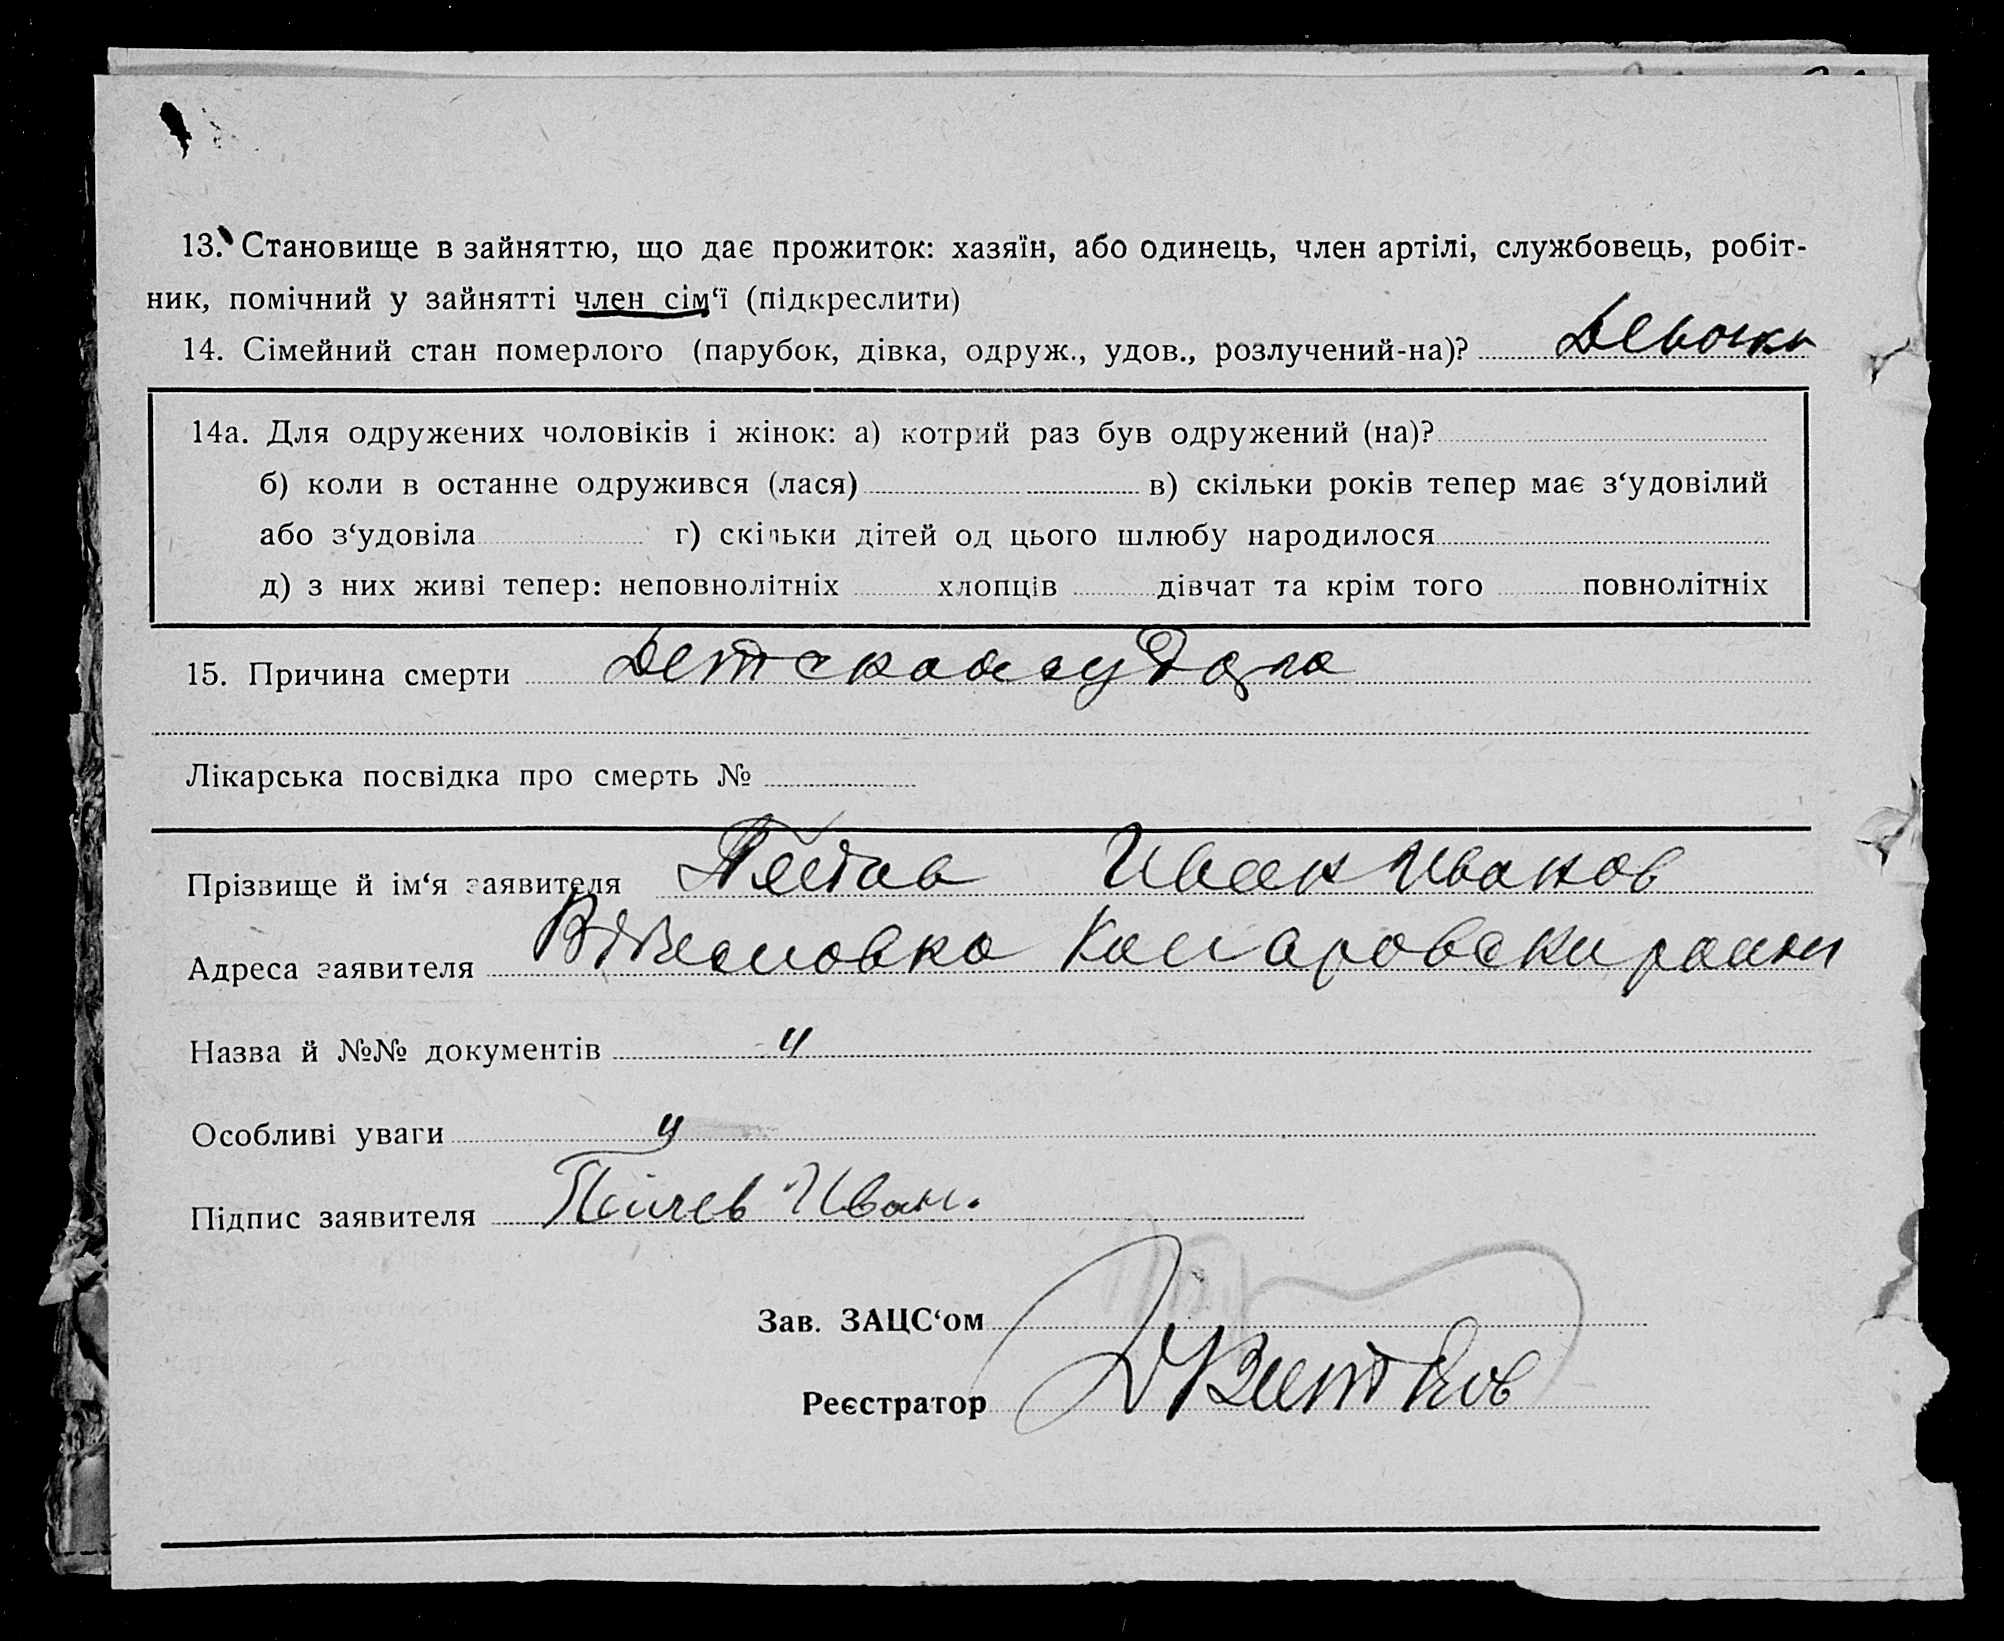 13. Становище в зайняттю, що дає прожиток: хазяїн, або одинець, член артілі, службовець, робіт-
ник, помічний у зайнятті член сім‘ї (підкреслити)
14. Сімейний стан померлого (парубок, дівка, одруж., удов., розлучений-на)? Девочка
14а. Для одружених чоловіків і жінок: а) котрий раз був одружений (на)?
б) коли в останне одружився (лася) в) скільки років тепер має з‘удовілий
або з‘удовіла г) скільки дітей од цього шлюбу народилося
д) з них живі тепер: неповнолітніх хлопців дівчат та крім того повнолітніх
15. Причина смерти Детская
Лікарська посвідка про смерть №
Прізвище й ім‘я заявителя Иван Иванов
Адреса заявителя
Назва й №№ документів
Особливі уваги
Підпис заявителя Иван.
Зав. ЗАЦС‘ом
Реєстратор